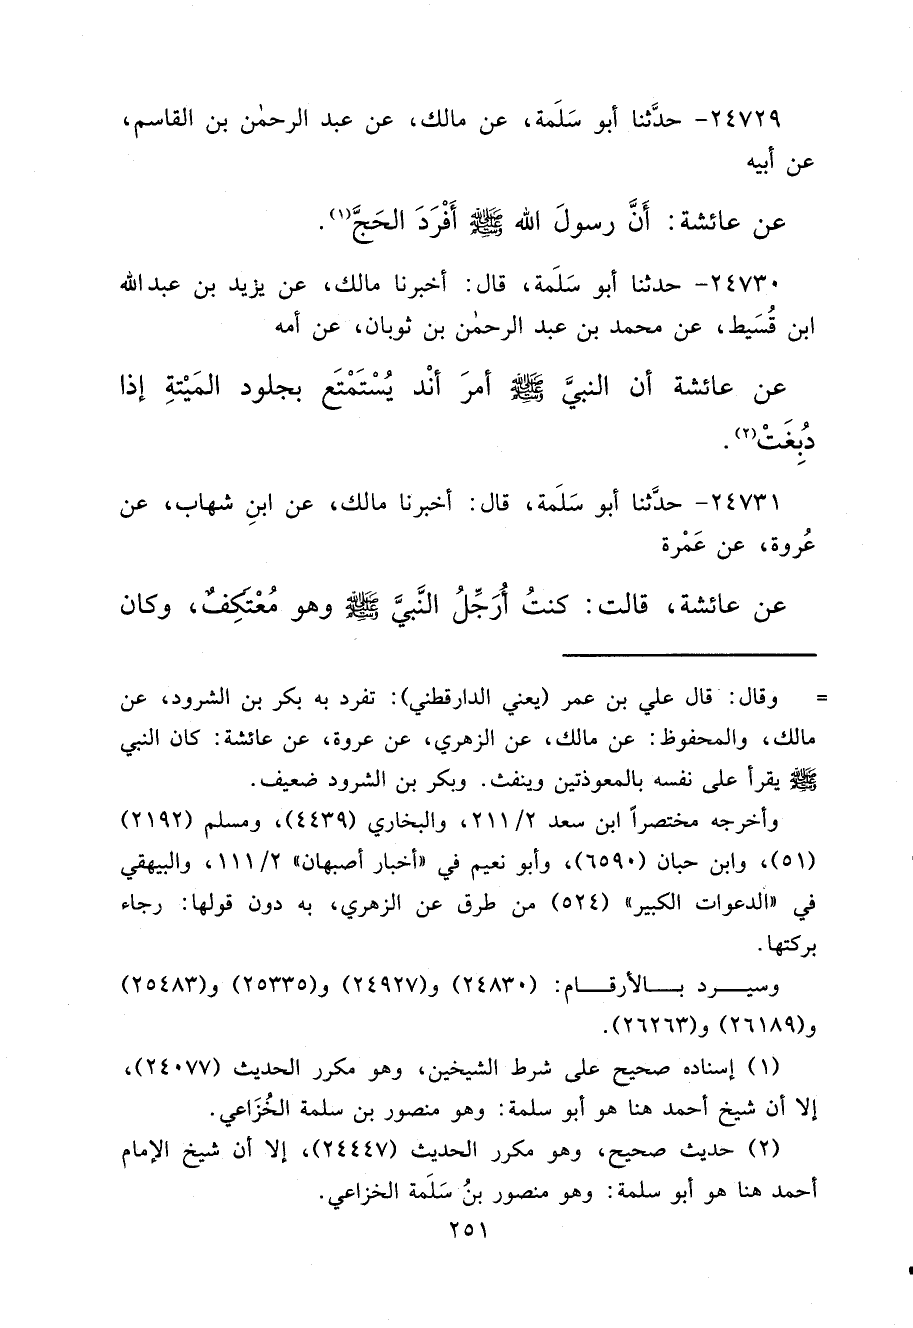 ٢٤٧٢٩- حدَّثنا أبو سَلَمة، عن مالك، عن عبد الرحمٰن بن القاسم،
عن أبيه
عن عائشة: أَنَّ رسولَ الله ﷺ أَفْرَدَ الحَجَّ(١).
٢٤٧٣٠- حدثنا أبو سَلَمة، قال: أخبرنا مالك، عن يزيد بن عبدالله
ابن قُسَيط، عن محمد بن عبد الرحمٰن بن ثوبان، عن أمه
عن عائشة أن النبيَّ ﷺ أمرَ أنْد يُسْتَمْتَع بجلود المَيْتةِ إذا
دُبِغَتْ(٢).
٢٤٧٣١- حدَّثنا أبو سَلَمة، قال: أخبرنا مالك، عن ابنِ شهاب، عن
عُروة، عن عَمْرة
عن عائشة، قالت: كنتُ أُرَجِّلُ النَّبيَّ ﷺ وهو مُعْتَكِفٌ، وكان
= وقال: قال علي بن عمر (يعني الدارقطني): تفرد به بكر بن الشرود، عن
مالك، والمحفوظ: عن مالك، عن الزهري، عن عروة، عن عائشة: كان النبي
ﷺ يقرأ على نفسه بالمعوذتين وينفث. وبكر بن الشرود ضعيف.
وأخرجه مختصراً ابن سعد ٢١١/٢، والبخاري (٤٤٣٩)، ومسلم (٢١٩٢)
(٥١)، وابن حبان (٦٥٩٠)، وأبو نعيم في «أخبار أصبهان» ١١١/٢، والبيهقي
في «الدعوات الكبير» (٥٢٤) من طرق عن الزهري، به دون قولها: رجاء
بركتها.
وسيرد بالأرقام: (٢٤٨٣٠) و(٢٤٩٢٧) و(٢٥٣٣٥) و(٢٥٤٨٣)
و(٢٦١٨٩) و(٢٦٢٦٣).
(١) إسناده صحيح على شرط الشيخين، وهو مكرر الحديث (٢٤٠٧٧)،
إلا أن شيخ أحمد هنا هو أبو سلمة: وهو منصور بن سلمة الخُزَاعي.
(٢) حديث صحيح، وهو مكرر الحديث (٢٤٤٤٧)، إلا أن شيخ الإمام
أحمد هنا هو أبو سلمة: وهو منصور بنُ سَلَمة الخزاعي.
٢٥١